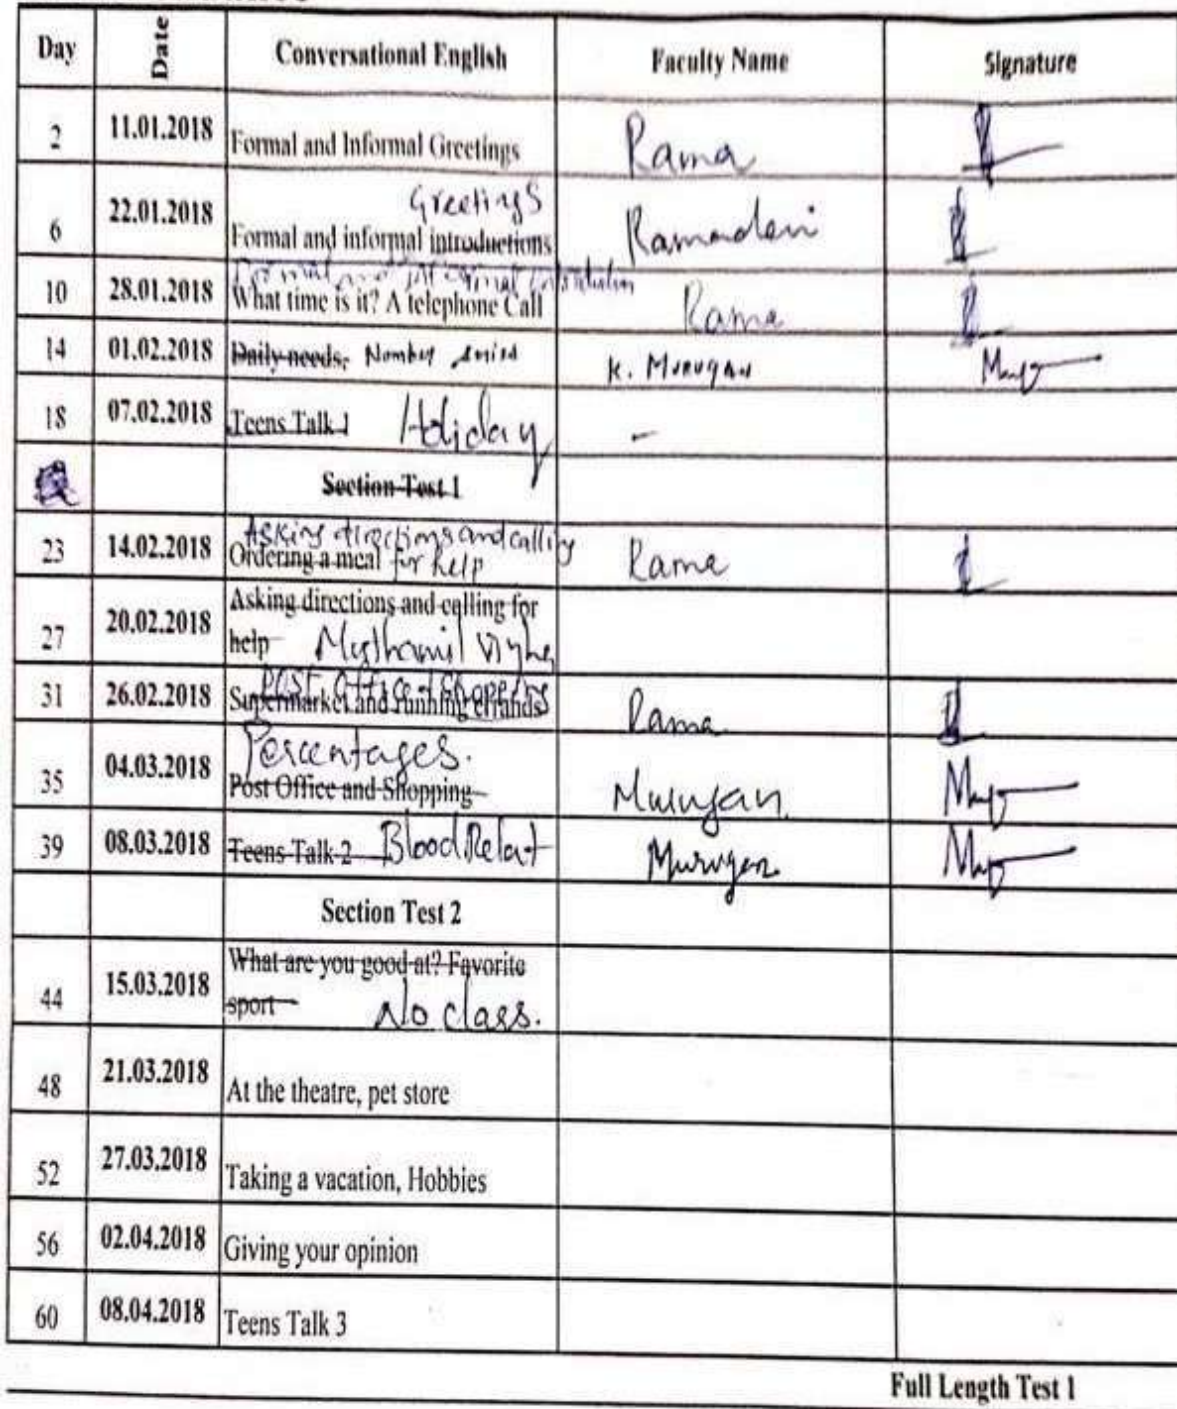 Day Date Conversational English Faculty Name Signature
2 11.01.2018 Formal and Informal Greetings Rama
Greetings
6 22.01.2018 Formal and informal introductions Ramadevi
Formal and informal
10 28.01.2018 What time is it? A telephone Call Rama
14 01.02.2018 Daily needs, Number K. Murugan
18 07.02.2018 Teens Talk 1 Holiday -
Section Test 1
Asking directions and calling
23 14.02.2018 Ordering a meal for help Rama
Asking directions and calling for
27 20.02.2018 help
Post office & Shopping
31 26.02.2018 Supermarket and running errands Rama
Percentages.
35 04.03.2018 Post Office and Shopping Murugan
39 08.03.2018 Teens Talk 2 Blood Relat Murugan
Section Test 2
What are you good at? Favorite
44 15.03.2018 sport No class.
48 21.03.2018 At the theatre, pet store
52 27.03.2018 Taking a vacation, Hobbies
56 02.04.2018 Giving your opinion
60 08.04.2018 Teens Talk 3
Full Length Test 1